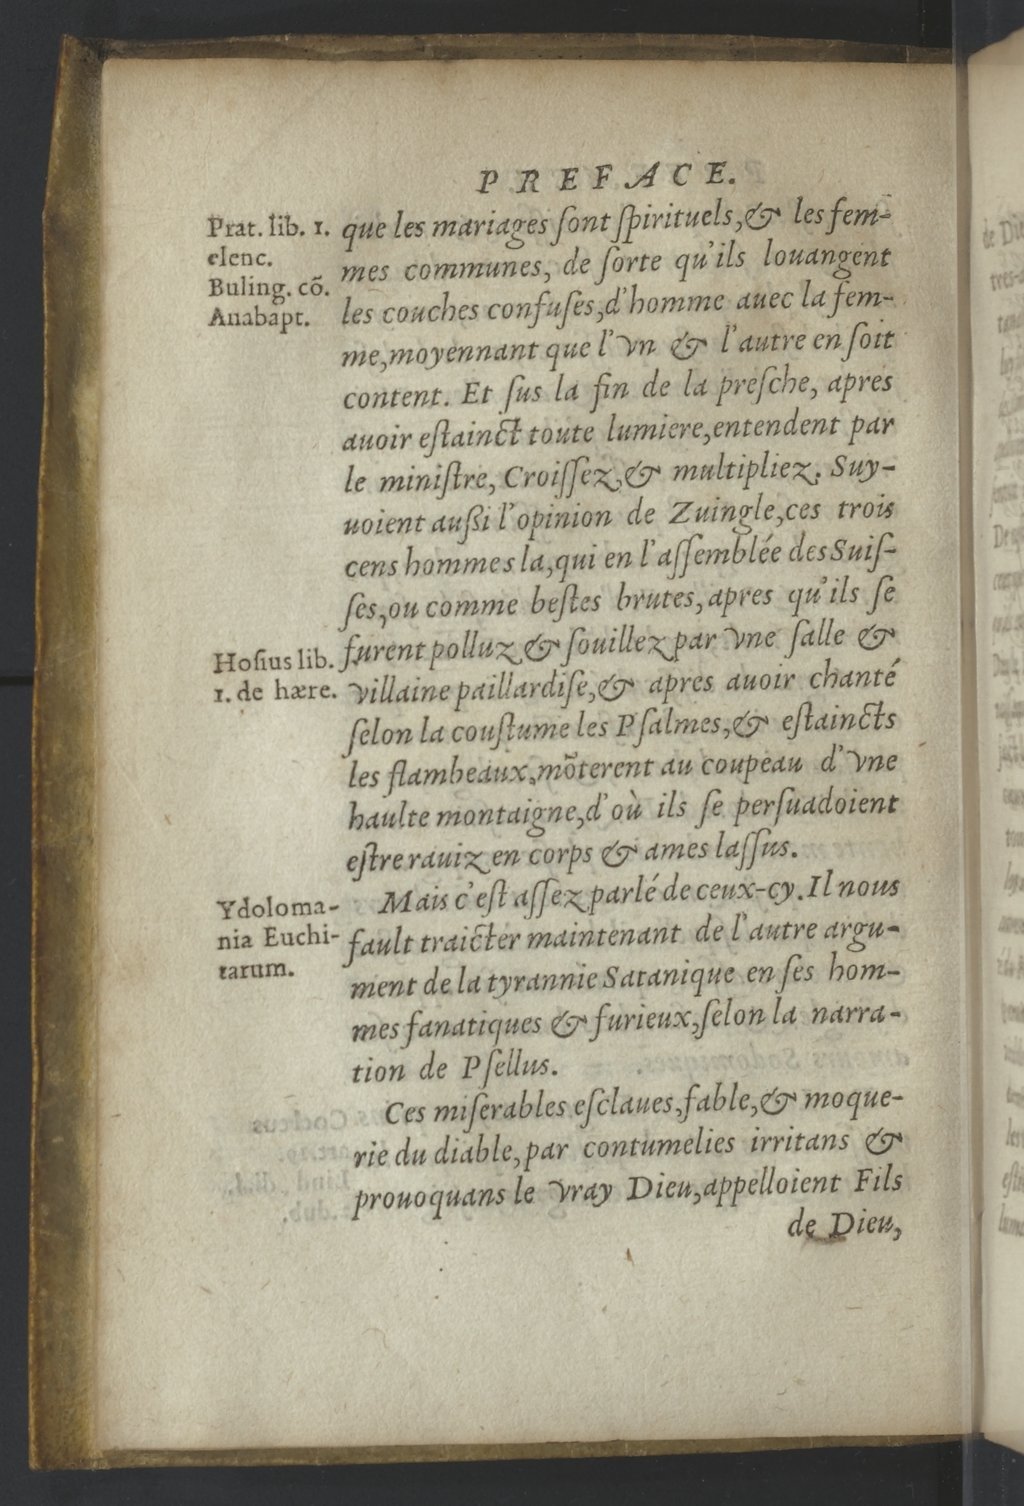 PREFACE.
Prat. lib. 1.
elenc.
Buling. cõ.
Anabapt.
que les mariages ſont ſpirituels, & les fem-
mes communes, de ſorte qu'ils louangent
les couches confuſes, d'homme auec la fem-
me, moyennant que l'vn & l'autre en ſoit
content. Et ſus la fin de la preſche, apres
auoir eſtainct toute lumiere, entendent par
le miniſtre, Croiſſez, & multipliez. Suy-
uoient außi l'opinion de Zuingle, ces trois
cens hommes la, qui en l'aſſemblée des Suiſ-
ſes, ou comme beſtes brutes, apres qu'ils ſe
Hoſius lib.
1. de hære.
furent polluz & ſouillez par vne ſalle &
villaine paillardiſe, & apres auoir chanté
ſelon la couſtume les Pſalmes, & eſtaincts
les flambeaux, mõterent au coupeau d'vne
haulte montaigne, d'où ils ſe perſuadoient
eſtre rauiz en corps & ames laſſus.
Ydoloma-
nia Euchi-
tarum.
Mais c'eſt aſſez parlé de ceux-cy. Il nous
fault traicter maintenant de l'autre argu-
ment de la tyrannie Satanique en ſes hom-
mes fanatiques & furieux, ſelon la narra-
tion de Pſellus.
Ces miſerables eſclaues, fable, & moque-
rie du diable, par contumelies irritans &
prouoquans le vray Dieu, appelloient Fils
de Dieu,